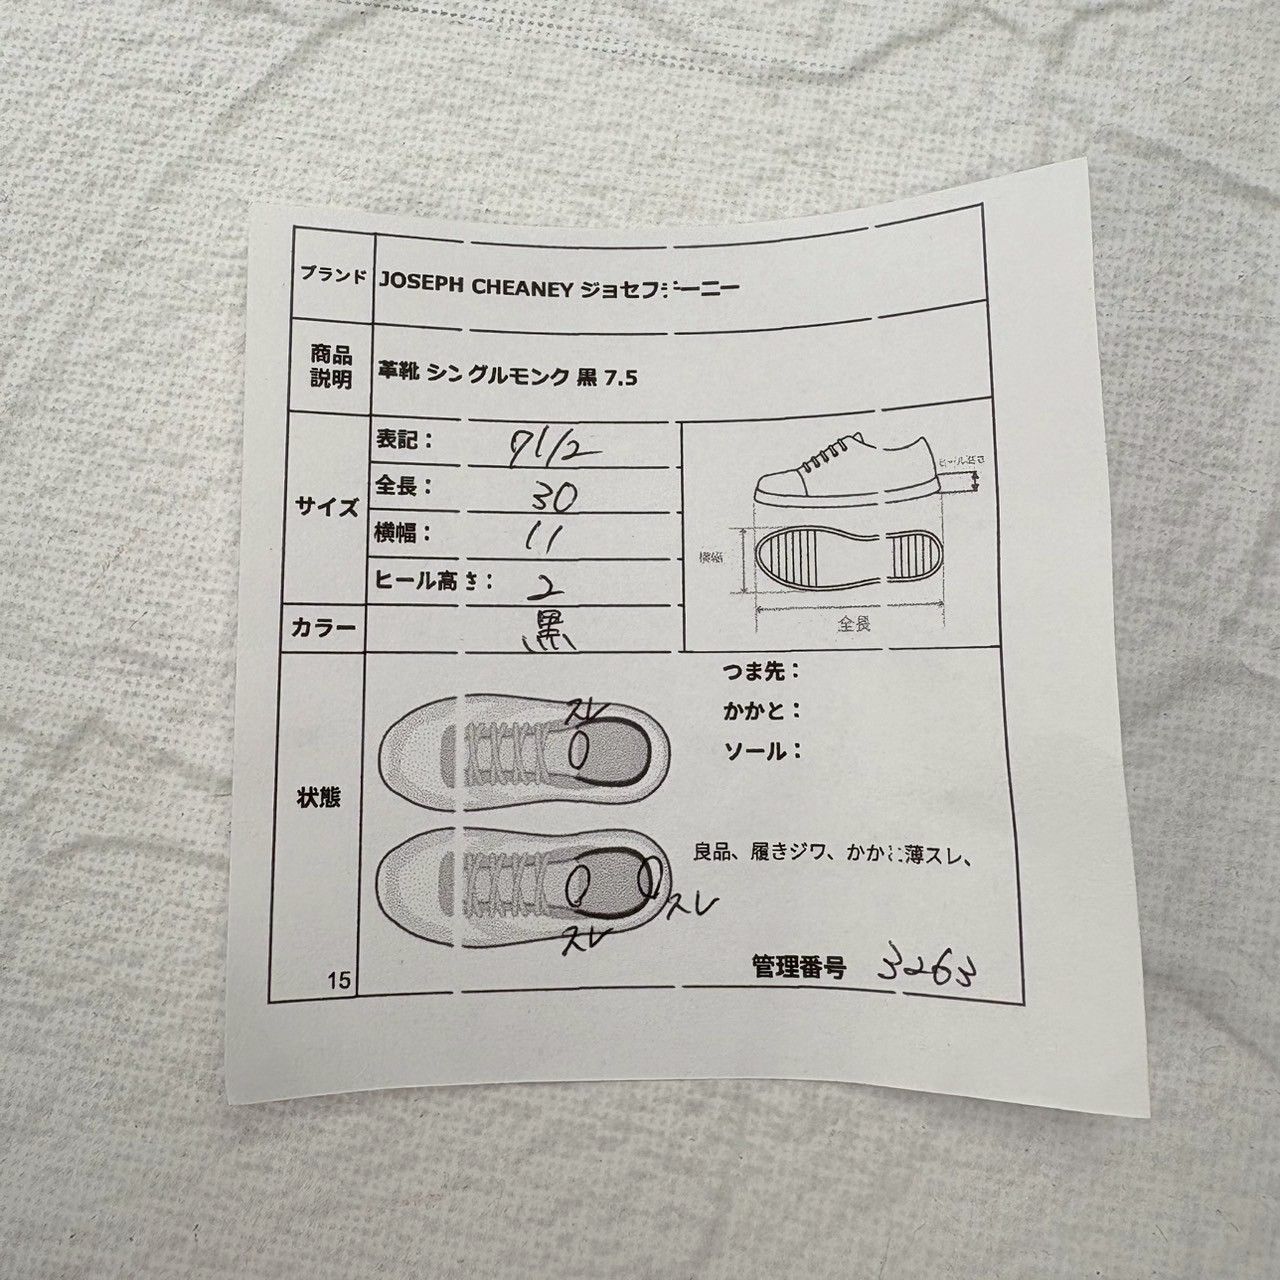 ブランド JOSEPH CHEANEY ジョセフチーニー
商品説明 革靴 シングルモンク 黒 7.5
サイズ
表記： 7 1/2
全長： 30
横幅： 11
ヒール高さ： 2
ヒール高さ
横幅
全長
カラー 黒
状態
つま先：
かかと：
ソール：
スレ
良品、履きジワ、かかと薄スレ、
スレ
スレ
管理番号 3263
15